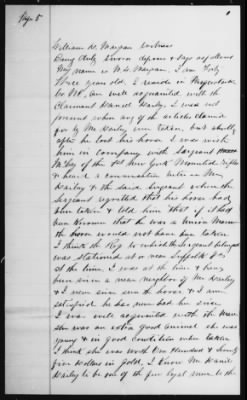 Page 5
William H. Morgan Witness
Being duly Sworn deposes & says as follows
My name is W. H. Morgan, I am forty
three years old, I reside in
Co Va, am well acquainted with the
Claimant Daniel I was not
present when any of the articles claimed
for by Mr were taken, but shortly
after he lost his horse I was with
him in company with Sargeant
McCoy of the 1st New York Mounted Rifles
& heard a conversation between Mr
& the said Sargeant when the
Sargeant reported that his horse had
been taken & told him that if they had
known that he was a Union Man
the horse would not have been taken
I think the Reg to which the Sargeant belonged
was stationed at or near Suffolk Va
at the time, I was at the time & have
been since a near neighbor of Mr
& I never seen the horse & I am
satisfied he has never had her since
I was well acquainted with the mare
she was an extra good animal she was
young & in good condition when taken
I think she was worth One Hundred & Seventy
five Dollars in Gold, I know Mr Daniel
to be one of the few loyal men to the